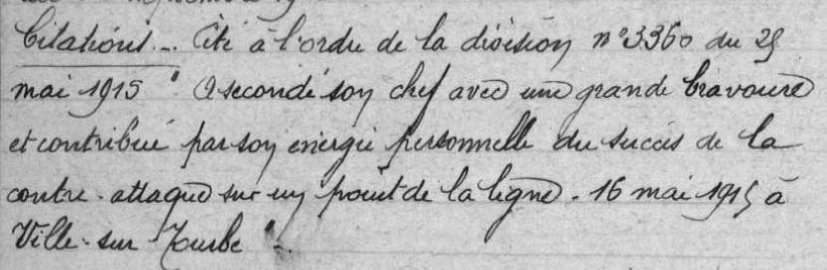 Citations.- Cité à l'ordre de la division n° 3360 du 25
mai 1915 " A secondé son chef avec une grande bravoure
et contribué par son énergie personnelle du succès de la
contre-attaque sur un point de la ligne. 16 mai 1915 à
Ville-sur-Tourbe "-